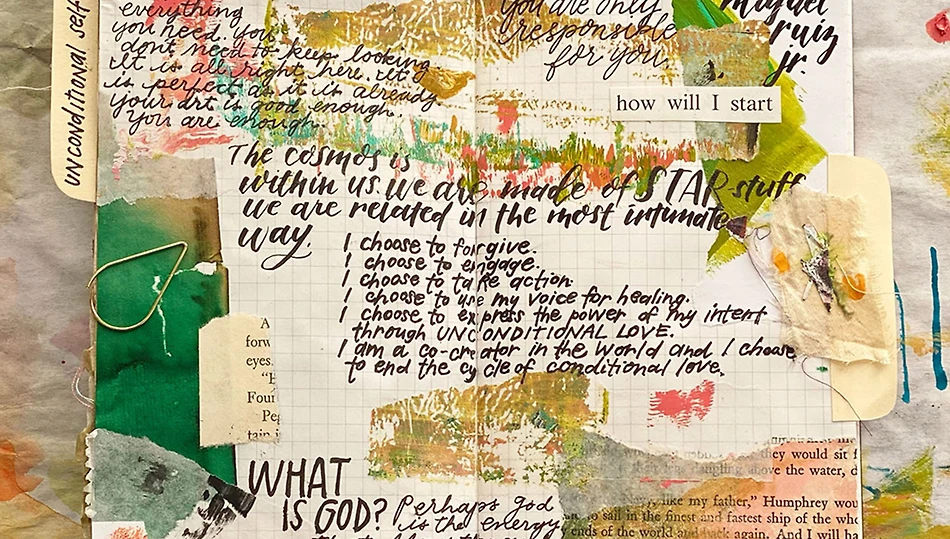 UNCONDITIONAL self
everything
you need. You
dont need to keep looking
It is all right here. It
is perfect as it is already
your art is good enough.
You are enough.
you are only
responsible
for you.
miguel
ruiz
jr.
how will I start
The cosmos is
within us. we are made of STAR stuff
we are related in the most intimate
way.
I choose to forgive.
I choose to engage.
I choose to take action.
I choose to use my voice for healing.
I choose to express the power of my intent
through UNCONDITIONAL LOVE.
I am a co-creator in the world and I choose
to end the cycle of conditional love.
A
forw
eyes.
"B
Four
Peg
tain i
WHAT
IS GOD? Perhaps god
is the energy
they would sit f
their legs dangling above the water, d
like my father," Humphrey wou
to sail in the finest and fastest ship of the who
ends of the world and back again. And I will ha